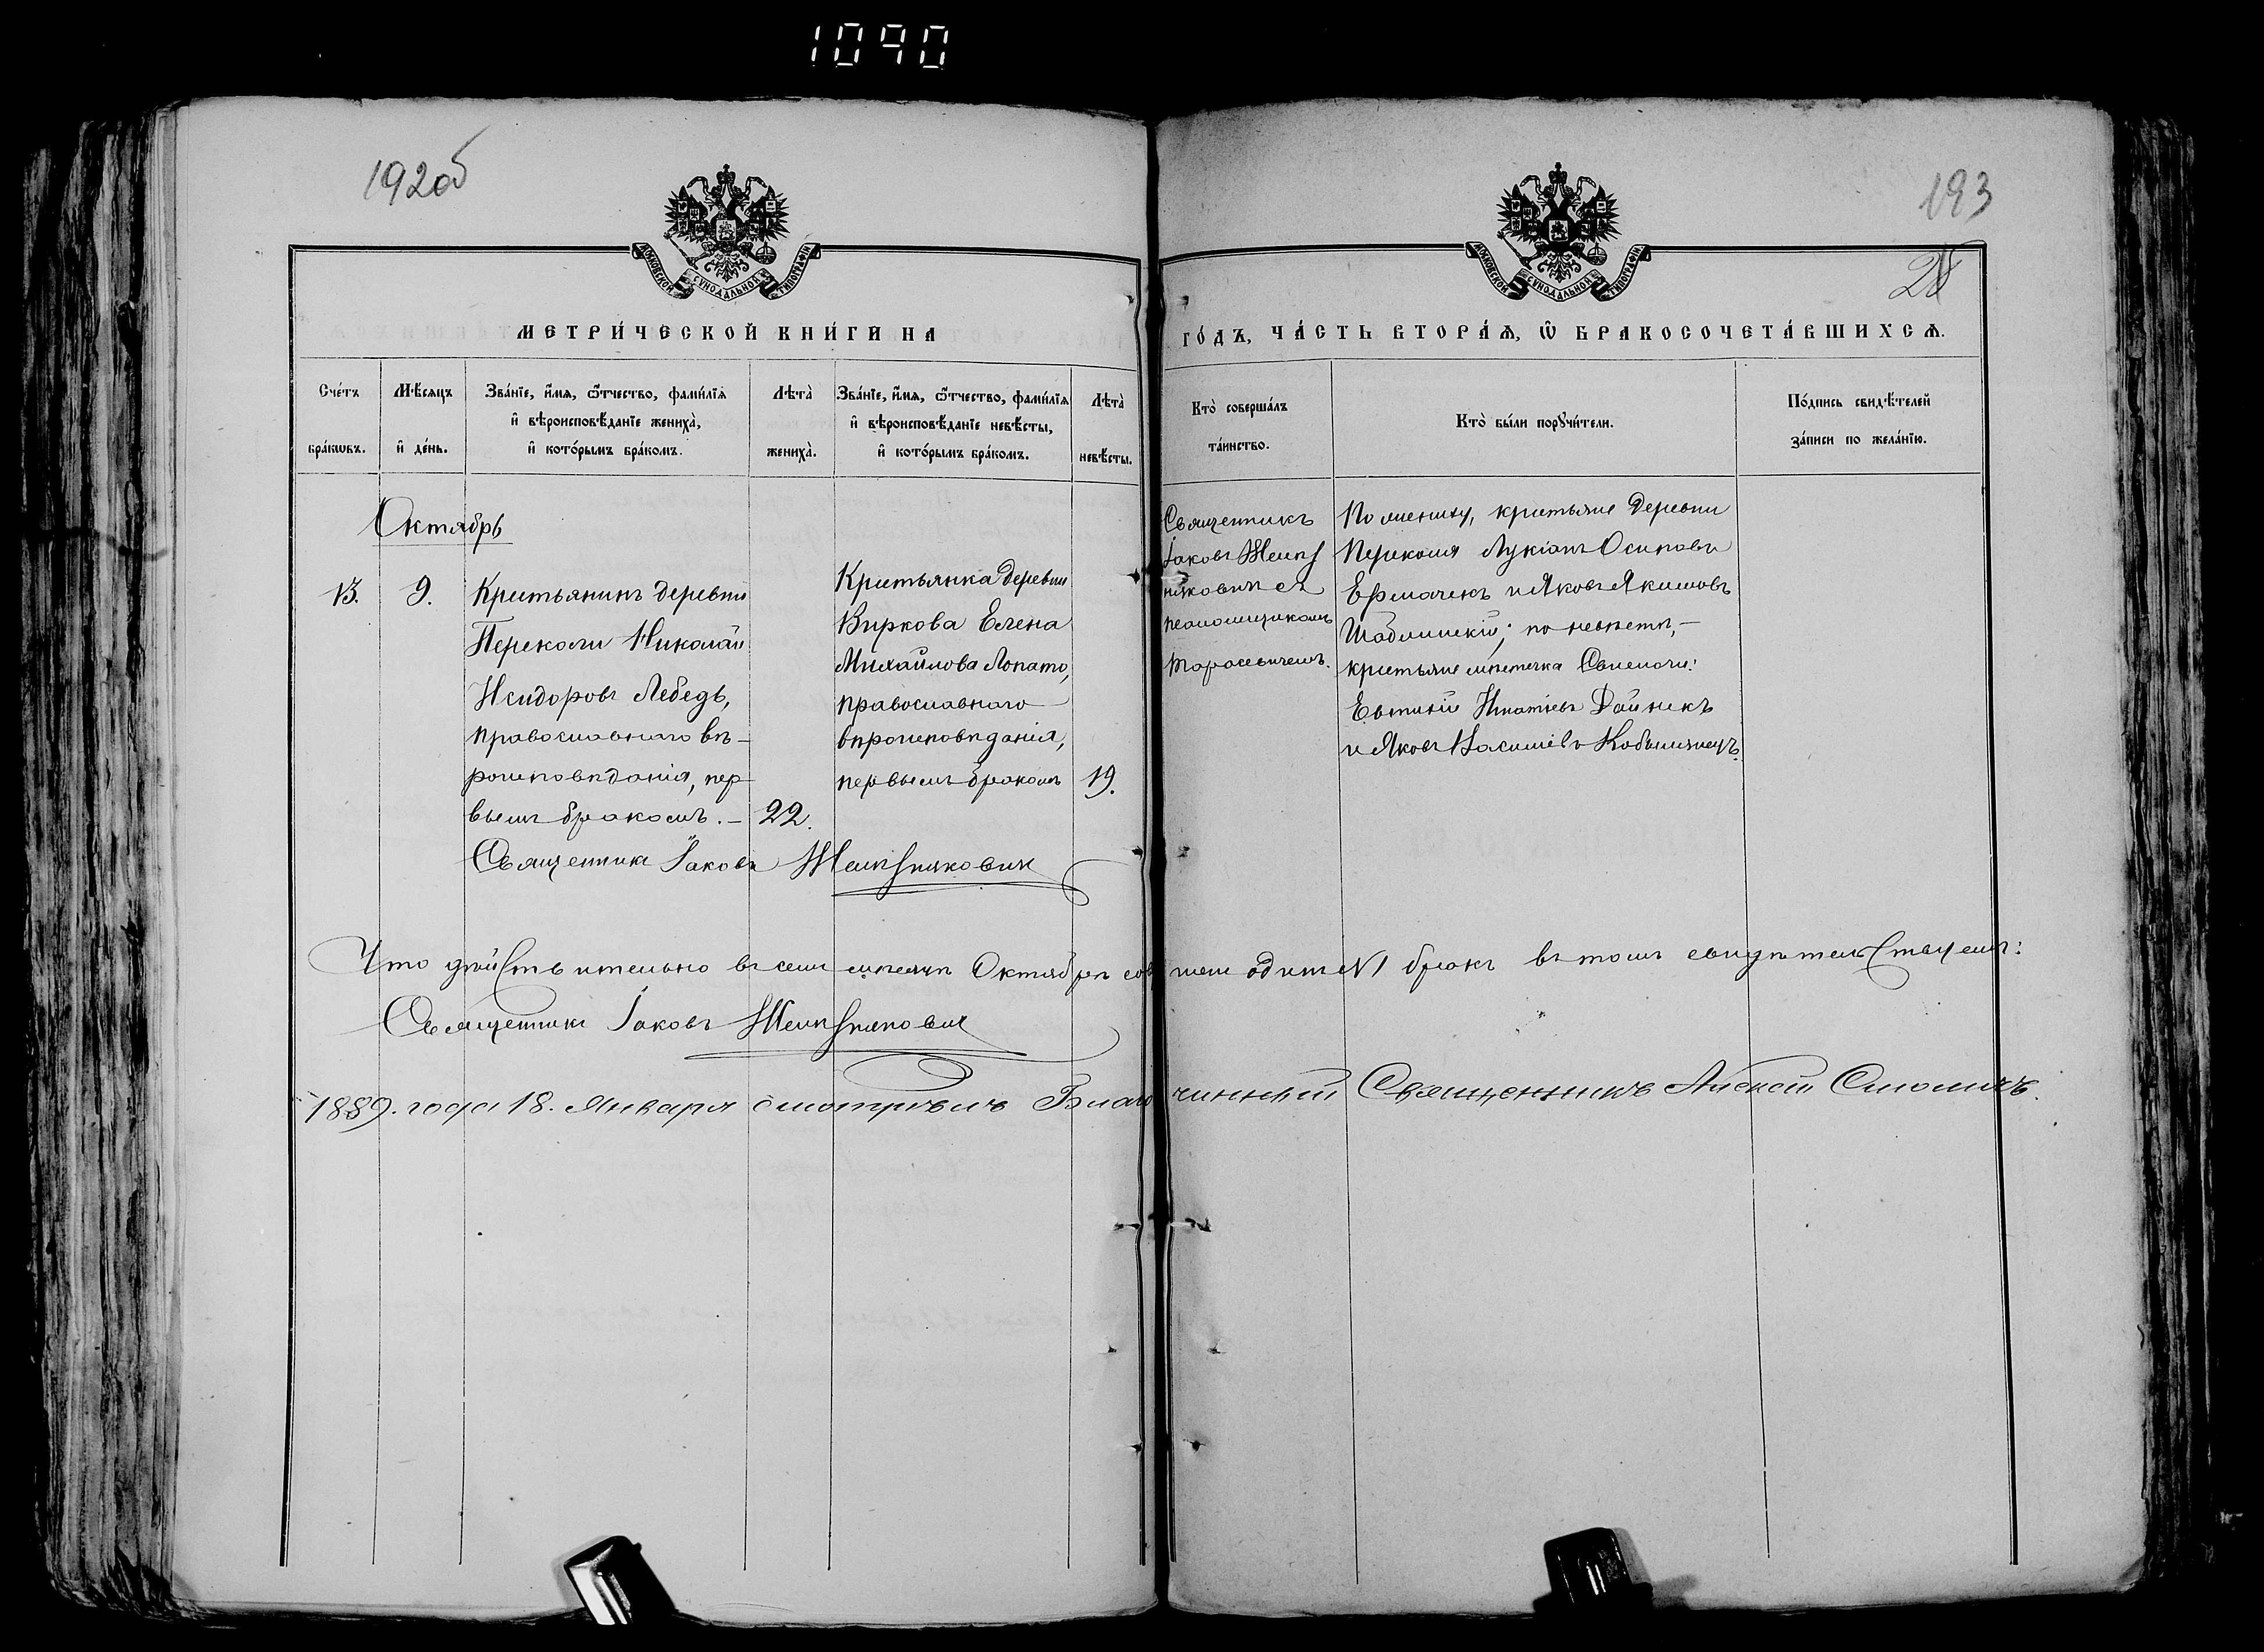 1090
192об
193
28
МОСКОВСКОЙ СѴНОДАЛЬНОЙ ТИПОГРАФІИ
МОСКОВСКОЙ СѴНОДАЛЬНОЙ ТИПОГРАФІИ
МЕТРИ́ЧЕСКОЙ КНИ́ГИ НА
ГО́ДЪ, ЧА́СТЬ ВТОРА́Ѧ, Ѿ БРАКОСОЧЕТА́ВШИХСѦ.
Сче́тъ
бра́кѡвъ.
Мѣ́сяцъ
и҆ де́нь.
Зва́нїе, и҆́мя, ѻ҆́тчество, фами́лїя
и҆ вѣроисповѣ́данїе жениха̀,
и҆ кото́рымъ бра́комъ.
Лѣта̀
жениха̀.
Зва́нїе, и҆́мя, ѻ҆́тчество, фами́лїя
и҆ вѣроисповѣ́данїе невѣ́сты,
и҆ кото́рымъ бра́комъ.
Лѣта̀
невѣ́сты.
Кто̀ соверша́лъ
та́инство.
Кто̀ бы́ли порꙋчи́тели.
По́дпись свидѣ́телей
за́писи по жела́нїю.
Октябрь
13.
9.
Крестьянинъ деревни
Переколи Николай
Исидоровъ Лебедь,
православнаго вѣ-
роисповѣданія, пер
вымъ бракомъ. –
22.
Крестьянка деревни
Виркова Елена
Михайлова Лопато,
православнаго
вѣроисповѣданія,
первымъ бракомъ
19.
Священникъ
Іаковъ
съ
псаломщикомъ
Тарасевичемъ.
По жениху, крестьяне деревни
Переколя Лукіанъ Осиповъ
Ермачекъ и Яковъ Якимовъ
по невѣстѣ, –
крестьяне мѣстечка Свислочи:
Евтихій Игнатіевъ Дайнекъ
и Яковъ
Священникъ Іаковъ
Что дѣйствительно въ семъ мѣсяцѣ Октябрѣ совершенъ одинъ №1 бракъ въ томъ свидѣтельствуемъ:
Священникъ Іаковъ
1889. года 18. Января смотрѣлъ Благочинный Священникъ Алексѣй Смоличъ.